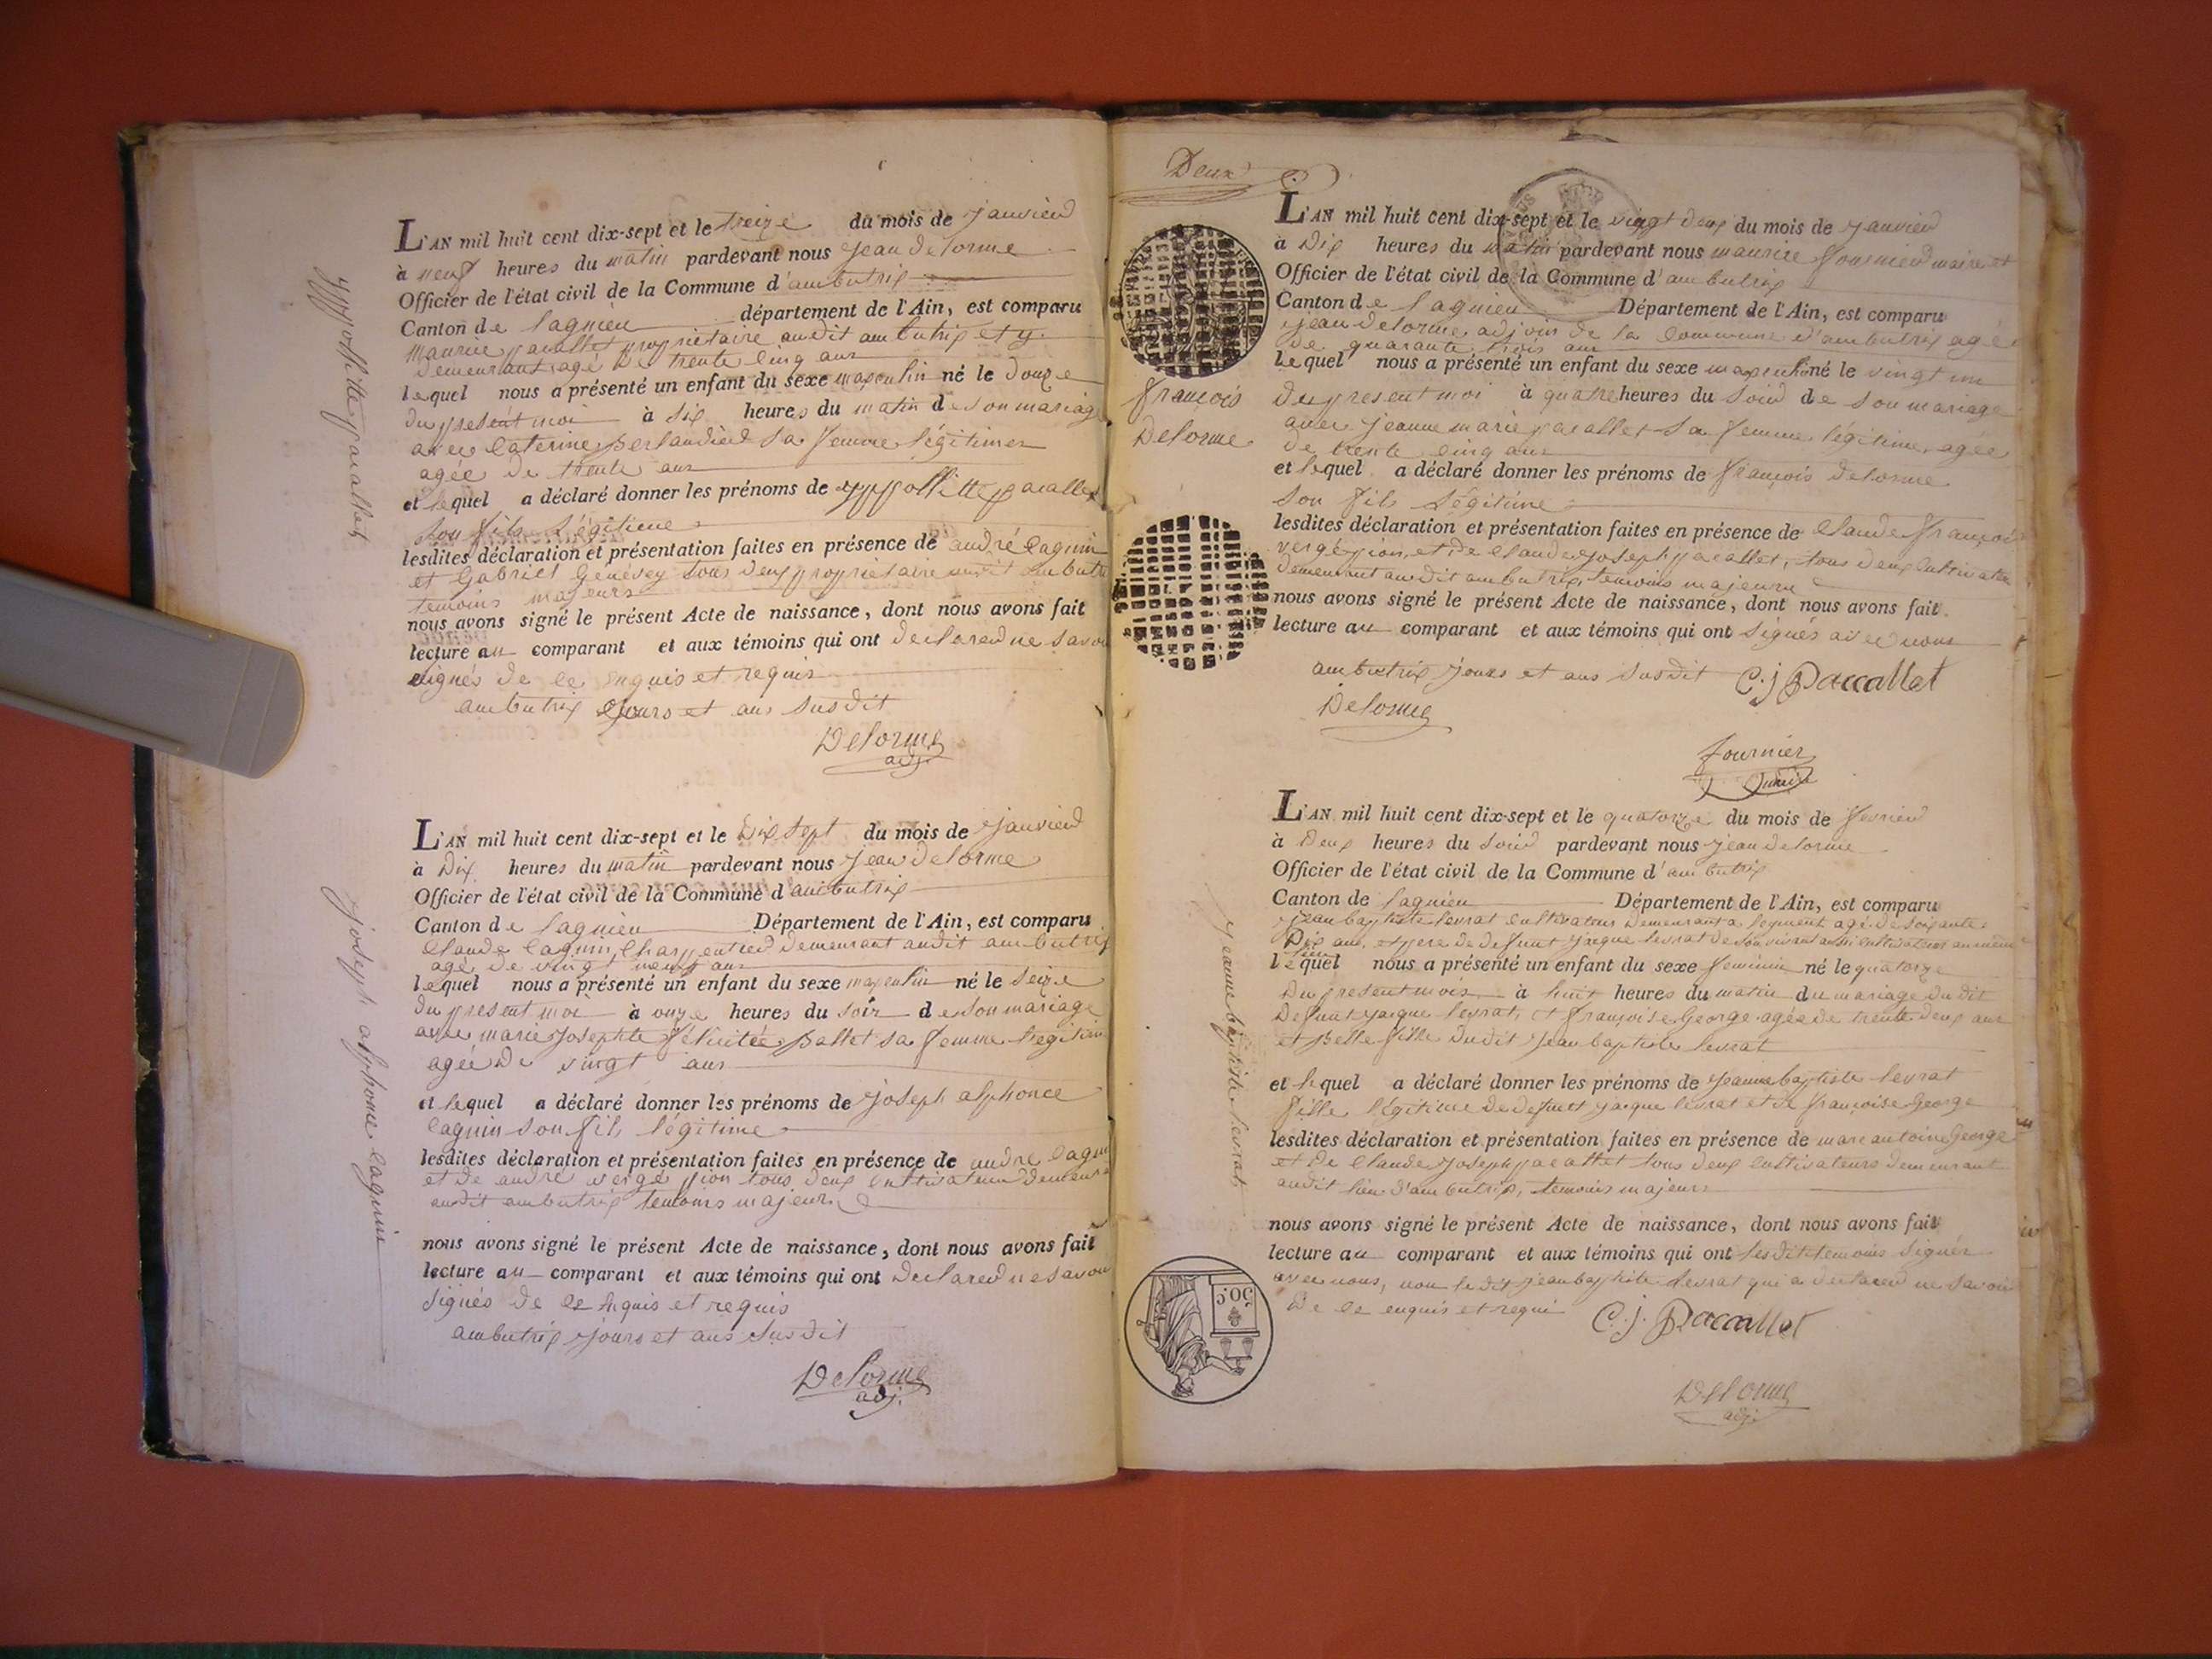 yppollitte pacallet
L'AN mil huit cent dix-sept et le treize du mois de janvier
à neuf heures du matin pardevant nous jean delorme
Officier de l'état civil de la Commune d'ambutrix
Canton de lagnieu département de l'Ain, est comparu
maurice pacallet proprietaire audit ambutrix et y
demeurant agé de trente cinq ans
lequel nous a présenté un enfant du sexe masculin né le douze
du present moi à six heures du matin de son mariage
avec caterine perlandier sa femme légitimer
agée de trente ans
et lequel a déclaré donner les prénoms de yppollitte pacallet
son fils légitime
lesdites déclaration et présentation faites en présence de andré cagnin
et Gabriel Genévey tous deux propriétaire audit ambutr
temoins majeurs
nous avons signé le présent Acte de naissance, dont nous avons fait
lecture au comparant et aux témoins qui ont declarend ne savoi
signés de ce enquis et requis
ambutrix jours et ans susdit
Delorme
adj.
joseph alphonse cagnin
L'AN mil huit cent dix-sept et le dix sept du mois de janvier
à Dix heures du matin pardevant nous jean Delorme
Officier de l'état civil de la Commune d'ambutrix
Canton de lagnieu Département de l'Ain, est comparu
Claude Cagnin, Charpentier demeurant audit ambutrix
agé de vingt neuf ans
lequel nous a présenté un enfant du sexe masculin né le seize
du present moi à onze heures du soir de son mariage
avec marie josephte félicitée Ballet sa femme légitim
agée de vingt ans
et lequel a déclaré donner les prénoms de joseph alphonce
cagnin son fils légitime
lesdites déclaration et présentation faites en présence de andré cagn
et de andré vergé pion tous deux cultivateur demeur
audit ambutrix temoins majeur
nous avons signé le présent Acte de naissance, dont nous avons fait
lecture au comparant et aux témoins qui ont declarend ne savoi
signés de ce enquis et requis
ambutrix jours et ans susdit
Delorme
adj.
Deux
françois
Delorme
L'AN mil huit cent dix-sept et le vingt deux du mois de janvier
à Dix heures du matin pardevant nous maurice fournier maire et
Officier de l'état civil de la Commune d'ambutrix
Canton de lagnieu Département de l'Ain, est comparu
jean Delorme adjoin de la Commune d'ambutrix agé
de quarante trois ans
lequel nous a présenté un enfant du sexe masculin né le vingt un
du present moi à quatre heures du soir de son mariage
avec jeanne marie pacallet sa femme légitime, agée
de trente cinq ans
et lequel a déclaré donner les prénoms de françois Delorme
son fils légitime
lesdites déclaration et présentation faites en présence de Claude françois
vergé pion, et de Claude joseph pacallet, tous deux cultivateur
demeurant audit ambutrix temoins majeure
nous avons signé le présent Acte de naissance, dont nous avons fait
lecture au comparant et aux témoins qui ont signés avec nous
ambutrix, jours et ans susdit C. j Paccallet
Delorme
fournier
maire
jeanne baptiste levrat
L'AN mil huit cent dix-sept et le quatorze du mois de fevrier
à Deux heures du soir pardevant nous jean delorme
Officier de l'état civil de la Commune d'ambutrix
Canton de lagnieu Département de l'Ain, est comparu
jean baptiste levrat cultivateur demeurant a leyment agé de soixante
Dix ans, et pere de defunt jaque levrat de son vivant aussi cultivateur au même
lieu
lequel nous a présenté un enfant du sexe feminin né le quatorze
du present mois à huit heures du matin du mariage du dit
Defunt jaque levrat, et françoise George agée de trente deux ans
et belle fille dudit jean baptiste levrat
et lequel a déclaré donner les prénoms de jeanne baptiste levrat
fille légitime de defunt jaque levrat et de françoise George
lesdites déclaration et présentation faites en présence de marc antoine George
et de Claude joseph pacallet tous deux cultivateurs demeurant
audit lieu d'ambutrix, temoins majeurs
nous avons signé le présent Acte de naissance, dont nous avons fait
lecture au comparant et aux témoins qui ont lesdits temoins signés
avec nous, non le dit jean baptiste levrat qui a declarend ne savoir
De ce enquis et requi C. j. Pacallet
Delorme
adj.
50 C.